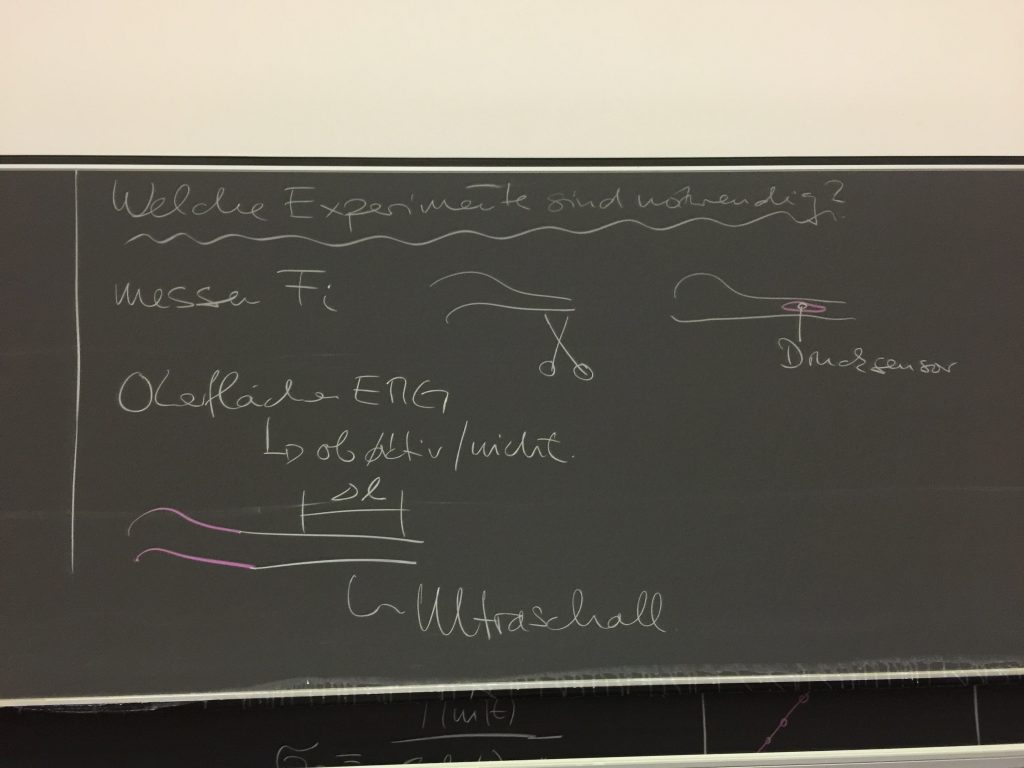 Welche Experimente sind notwendig?
messen Fi
Drucksensor
Oberfläche EMG
↳ ob aktiv/nicht.
Δl
↳ Ultraschall